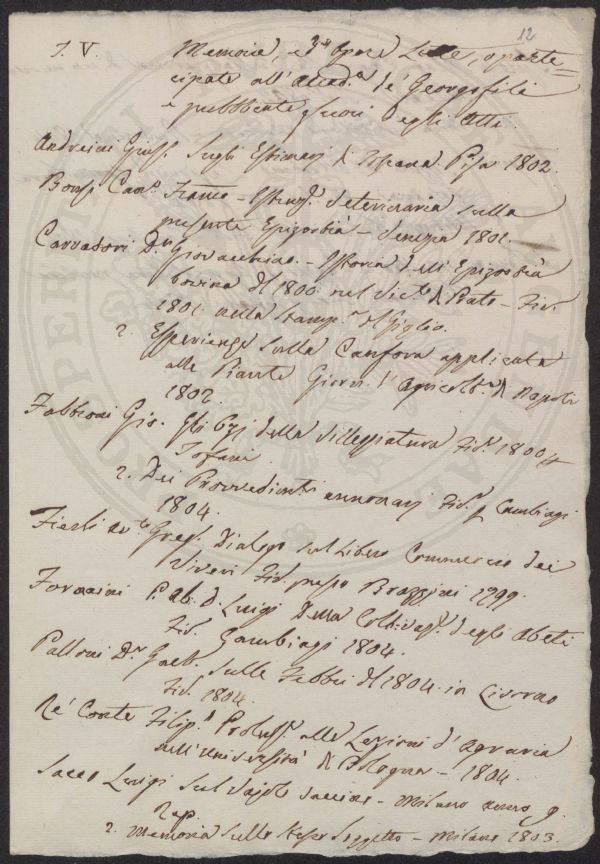 12
T. V.
Memorie, ed opere Lette, o parte
cipate all'Accad.a de' Georgofili
e pubblicate fuori degli Atti.
Andreini Gius. Sugli Estimari di Toscana Pisa 1802.
Bonsi Can.o Franco - Veterinaria sulla
presente Epizootia - Venezia 1801.
Carradori D.r Giovacchino - Istoria dell'Epizootia
bovina del 1800 nel Vic.to di Prato - Fir.
1801 nella Stamp.a del Giglio.
2. Esperienze sulla Canfora applicata
alle Piante Giorn. d'Agricolt.a di Napoli
1802.
Fabbroni Gio. Gli Ozj della Villeggiatura Fir.e 1800
Tofani
2. Dei Provvedimenti annonarj Fir.e Cambiagi
1804.
Fierli Av.to Greg. Dialogo sul Libero Commercio dei
Viveri Fir. presso Brazzini 1799.
Fornaini P. Ab. D. Luigi Della Coltivaz.e degli Abeti
Fir. Gambiagi 1804.
Palloni D.r Gaet. sulle Febbri del 1804 in Livorno
Fir. 1804.
Re' Conte Filip.o Prolus.e alle Lezioni d'Agraria
nell'Università di Bologna - 1804.
Sacco Luigi Sul Vajolo Vaccino - Milano anno 9.
Rep.
2. Memoria sullo stesso Soggetto - Milano 1803.